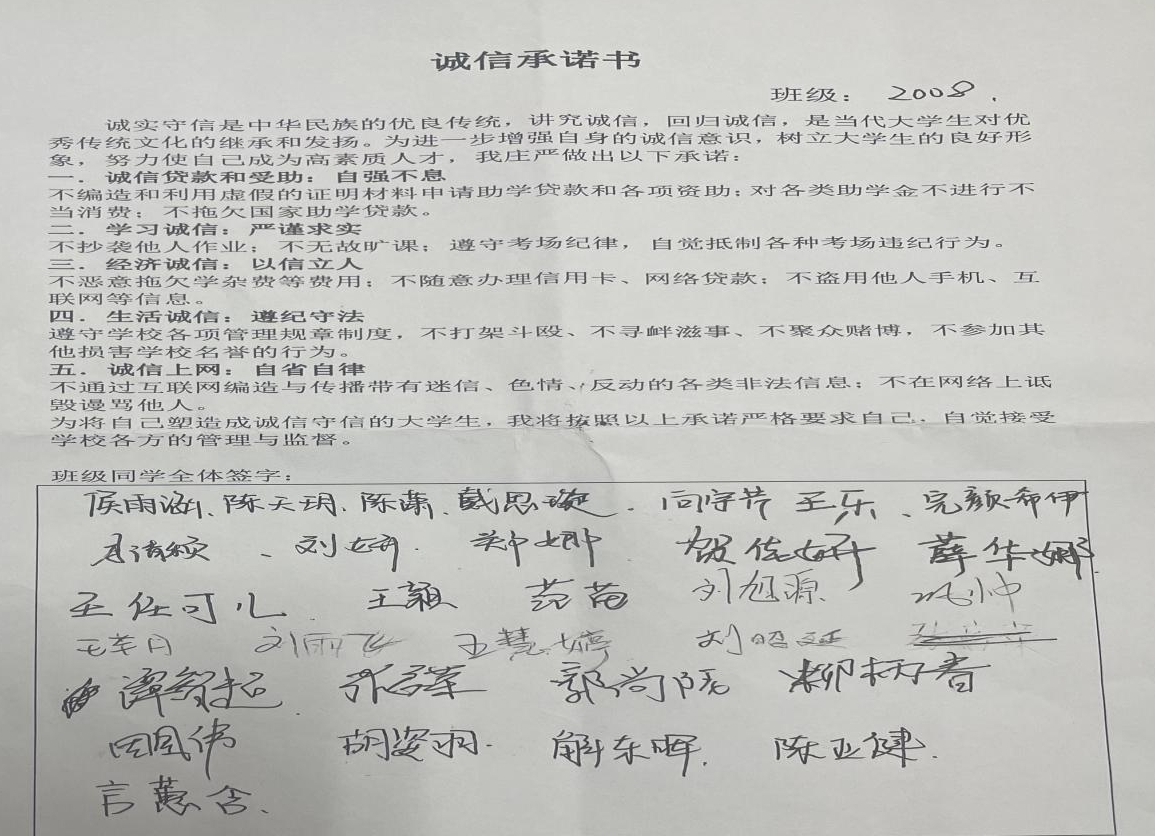 诚信承诺书
班级： 2008.
诚实守信是中华民族的优良传统，讲究诚信，回归诚信，是当代大学生对优
秀传统文化的继承和发扬。为进一步增强自身的诚信意识，树立大学生的良好形
象，努力使自己成为高素质人才，我庄严做出以下承诺：
一．诚信贷款和受助：自强不息
不编造和利用虚假的证明材料申请助学贷款和各项资助；对各类助学金不进行不
当消费；不拖欠国家助学贷款。
二．学习诚信：严谨求实
不抄袭他人作业；不无故旷课；遵守考场纪律，自觉抵制各种考场违纪行为。
三．经济诚信：以信立人
不恶意拖欠学杂费等费用；不随意办理信用卡、网络贷款；不盗用他人手机、互
联网等信息。
四．生活诚信：遵纪守法
遵守学校各项管理规章制度，不打架斗殴、不寻衅滋事、不聚众赌博，不参加其
他损害学校名誉的行为。
五．诚信上网：自省自律
不通过互联网编造与传播带有迷信、色情、反动的各类非法信息；不在网络上诋
毁谩骂他人。
为将自己塑造成诚信守信的大学生，我将按照以上承诺严格要求自己，自觉接受
学校各方的管理与监督。
班级同学全体签字：
侯雨涵、陈天玥、陈潇、戴思璇. 闫守芹 王乐、完颜希伊
刘妍. 郑娜 贺佳妍 薛华娜
王任可儿 王颖 范苗 刘旭源
刘雨飞 王慧婷 刘昭延
谭智超 郭尚 柳柄春
胡姿羽. 解东晖. 陈亚健.
言蕙含、